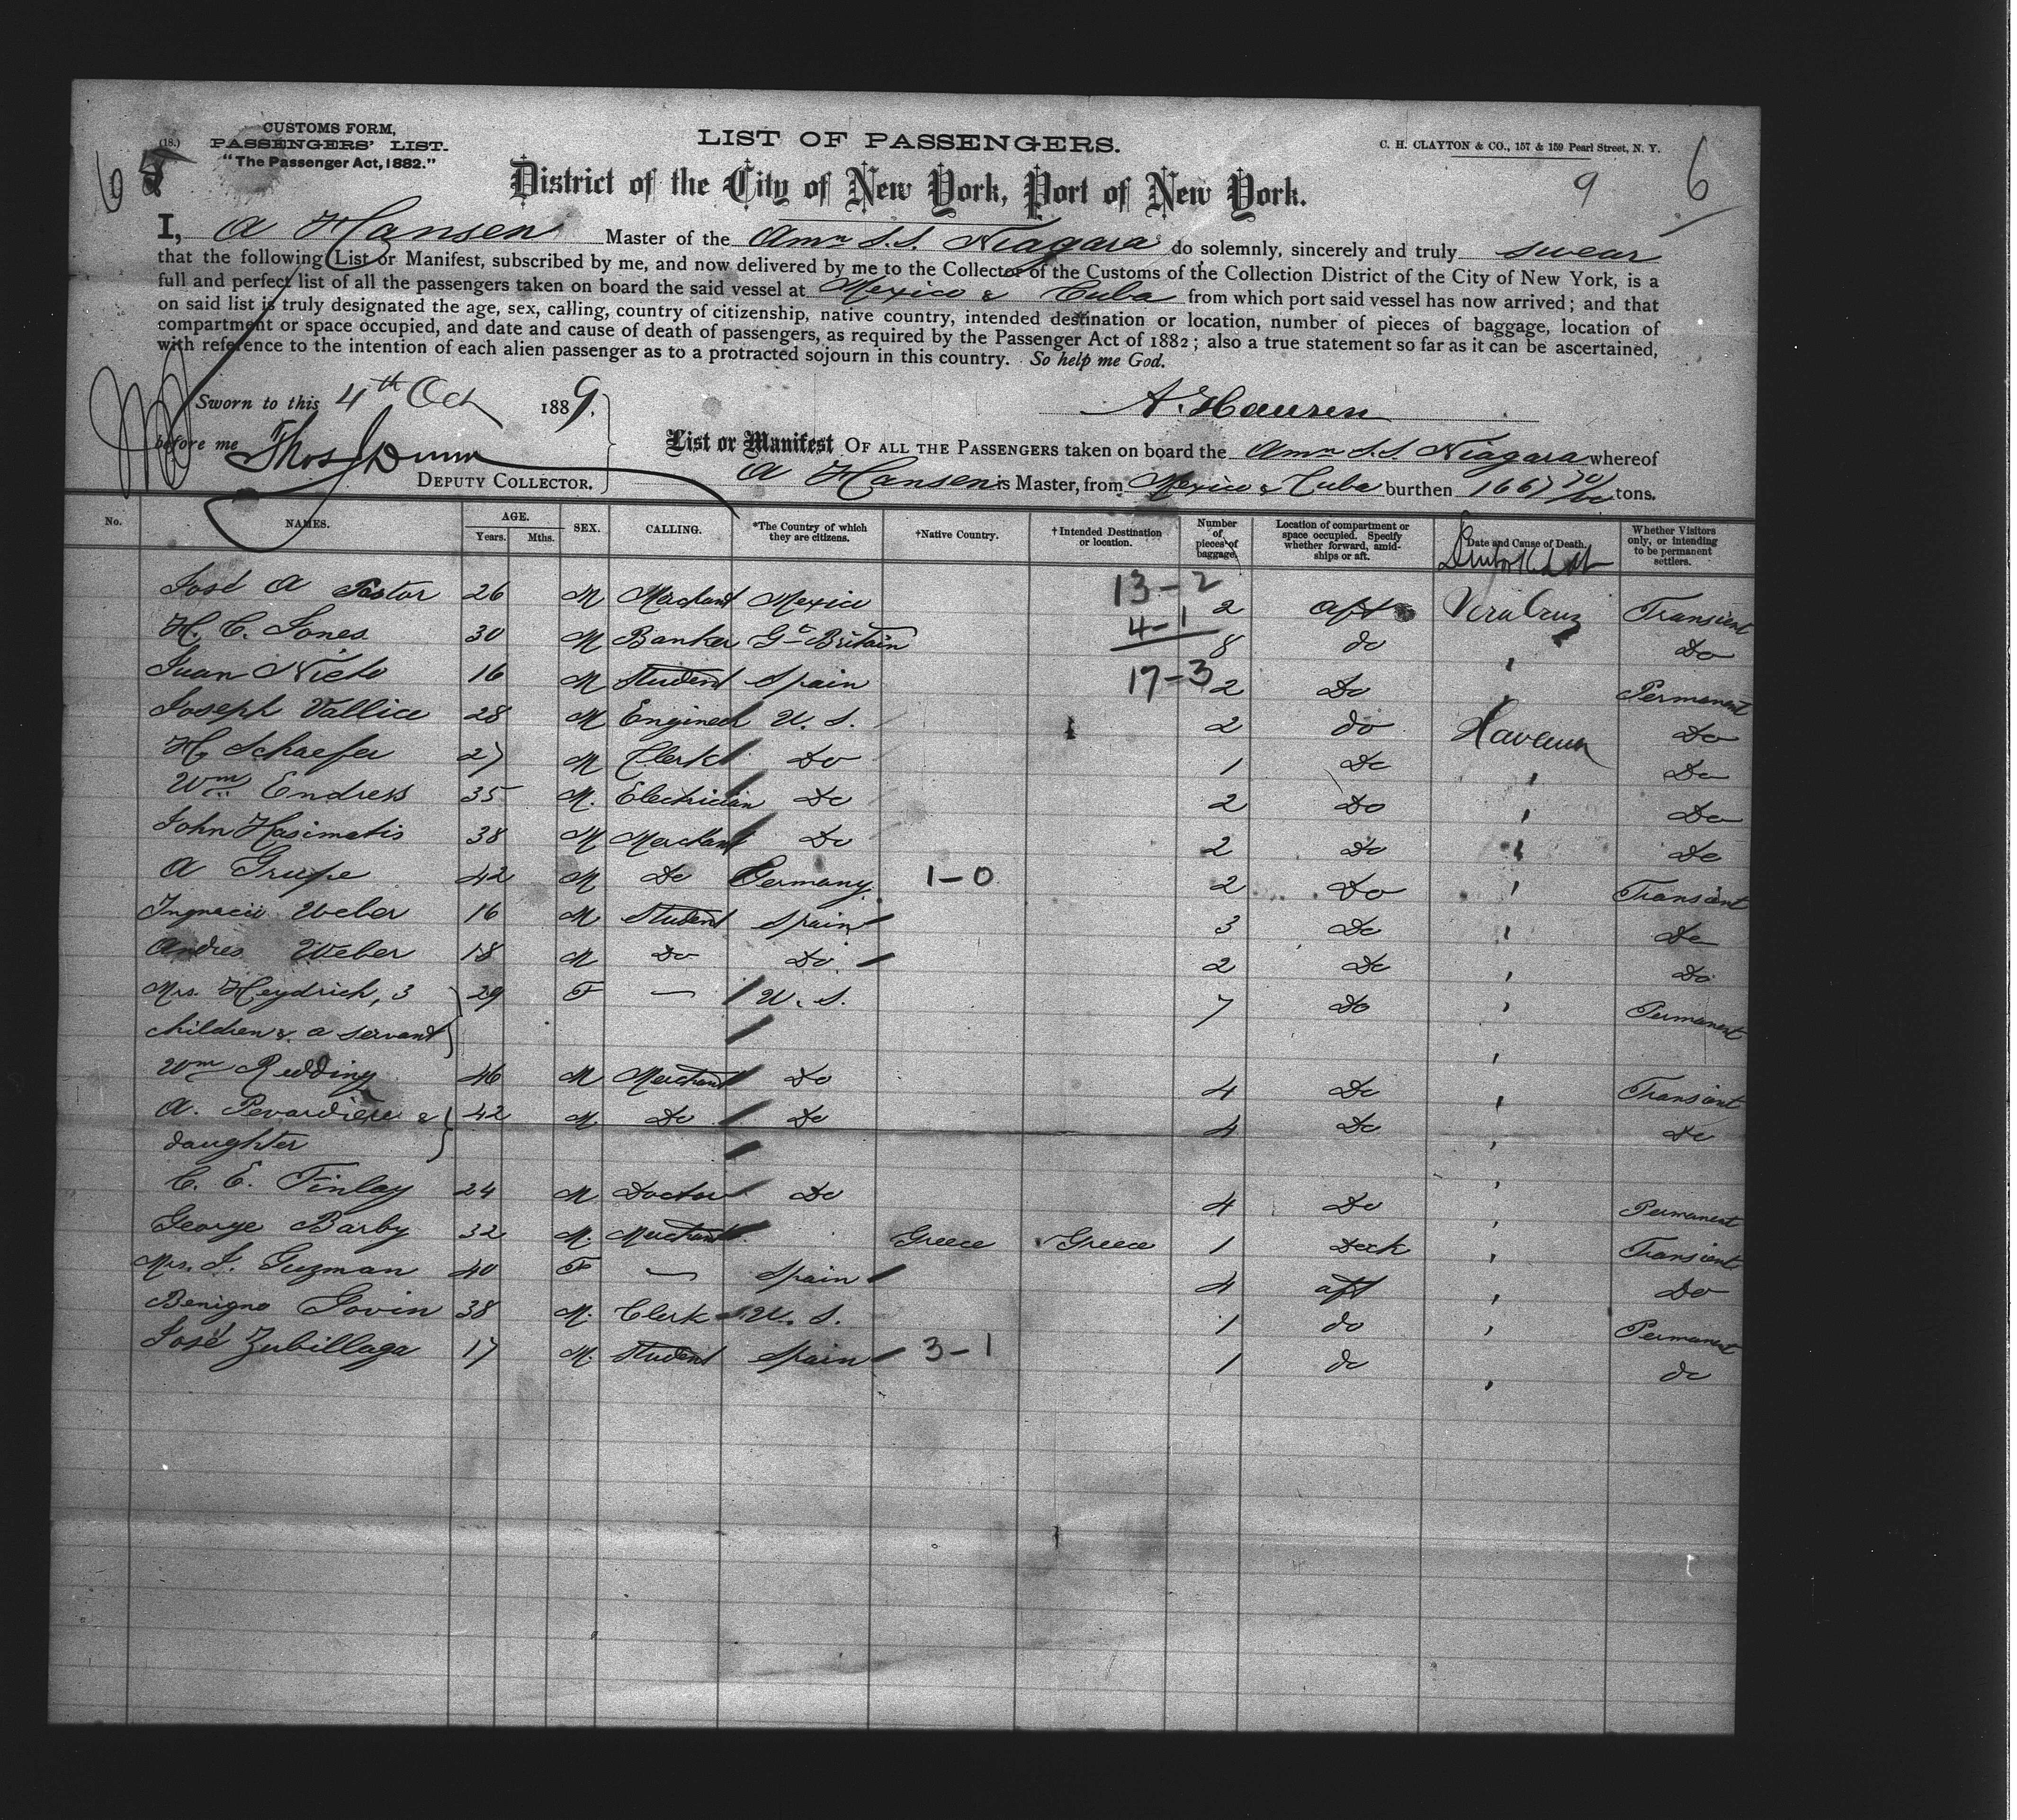 CUSTOMS FORM,
(18.) PASSENGERS' LIST.
"The Passenger Act, 1882."
LIST OF PASSENGERS.
C. H. CLAYTON & CO., 157 & 159 Pearl Street, N. Y.
9
6
District of the City of New York, Port of New York.
I, A Hansen Master of the Amn S.S. Niagara do solemnly, sincerely and truly swear
that the following List or Manifest, subscribed by me, and now delivered by me to the Collector of the Customs of the Collection District of the City of New York, is a
full and perfect list of all the passengers taken on board the said vessel at Mexico & Cuba from which port said vessel has now arrived; and that
on said list is truly designated the age, sex, calling, country of citizenship, native country, intended destination or location, number of pieces of baggage, location of
compartment or space occupied, and date and cause of death of passengers, as required by the Passenger Act of 1882; also a true statement so far as it can be ascertained,
with reference to the intention of each alien passenger as to a protracted sojourn in this country. So help me God.
Sworn to this 4th Oct 1889.
A. Hansen
before me Thos J Dunn
DEPUTY COLLECTOR.
List or Manifest OF ALL THE PASSENGERS taken on board the Amn S.S. Niagara whereof
A Hansen is Master, from Mexico & Cuba burthen 1667 tons.
No. NAMES. AGE. Years. Mths. SEX. CALLING. *The Country of which they are citizens. †Native Country. †Intended Destination or location. Number of pieces of baggage. Location of compartment or space occupied. Specify whether forward, amidships or aft. Date and Cause of Death. Whether Visitors only, or intending to be permanent settlers.
José A Pastor 26 M Merchant Mexico 13-2 2 aft Vera Cruz Transient
H. C. Jones 30 M Banker Gt Britain 4-1 8 do Do
Juan Nieto 16 M Student Spain 17-3 2 Do Permanent
Joseph Vallice 28 M Engineer U. S. 2 do Havana Do
H Schaefer 27 M Clerk Do 1 Do Do
Wm Endress 35 M. Electrician Do 2 Do Do
John Hasimatis 38 M Merchant Do 2 Do Do
A Grupe 42 M Do Germany 1-0 2 Do Transient
Ingnacio Weber 16 M Student Spain 3 Do Do
Andres Weber 18 M Do Do 2 Do Do
Mrs. Heydrich, 3 29 F — U. S. 7 Do Permanent
children & a servant
Wm Redding 46 M Merchant Do 4 Do Transient
A. & 42 M Do Do 4 Do Do
daughter
C. E. Finlay 24 M Doctor Do 4 Do Permanent
George Barby 32 M. Merchant Greece Greece 1 Deck Transient
Mrs. J. Guzman 40 F — Spain 4 aft Do
Benigno Govin 38 M. Clerk U. S. 1 do Permanent
José Zubillaga 17 M. Student Spain 3-1 1 do do